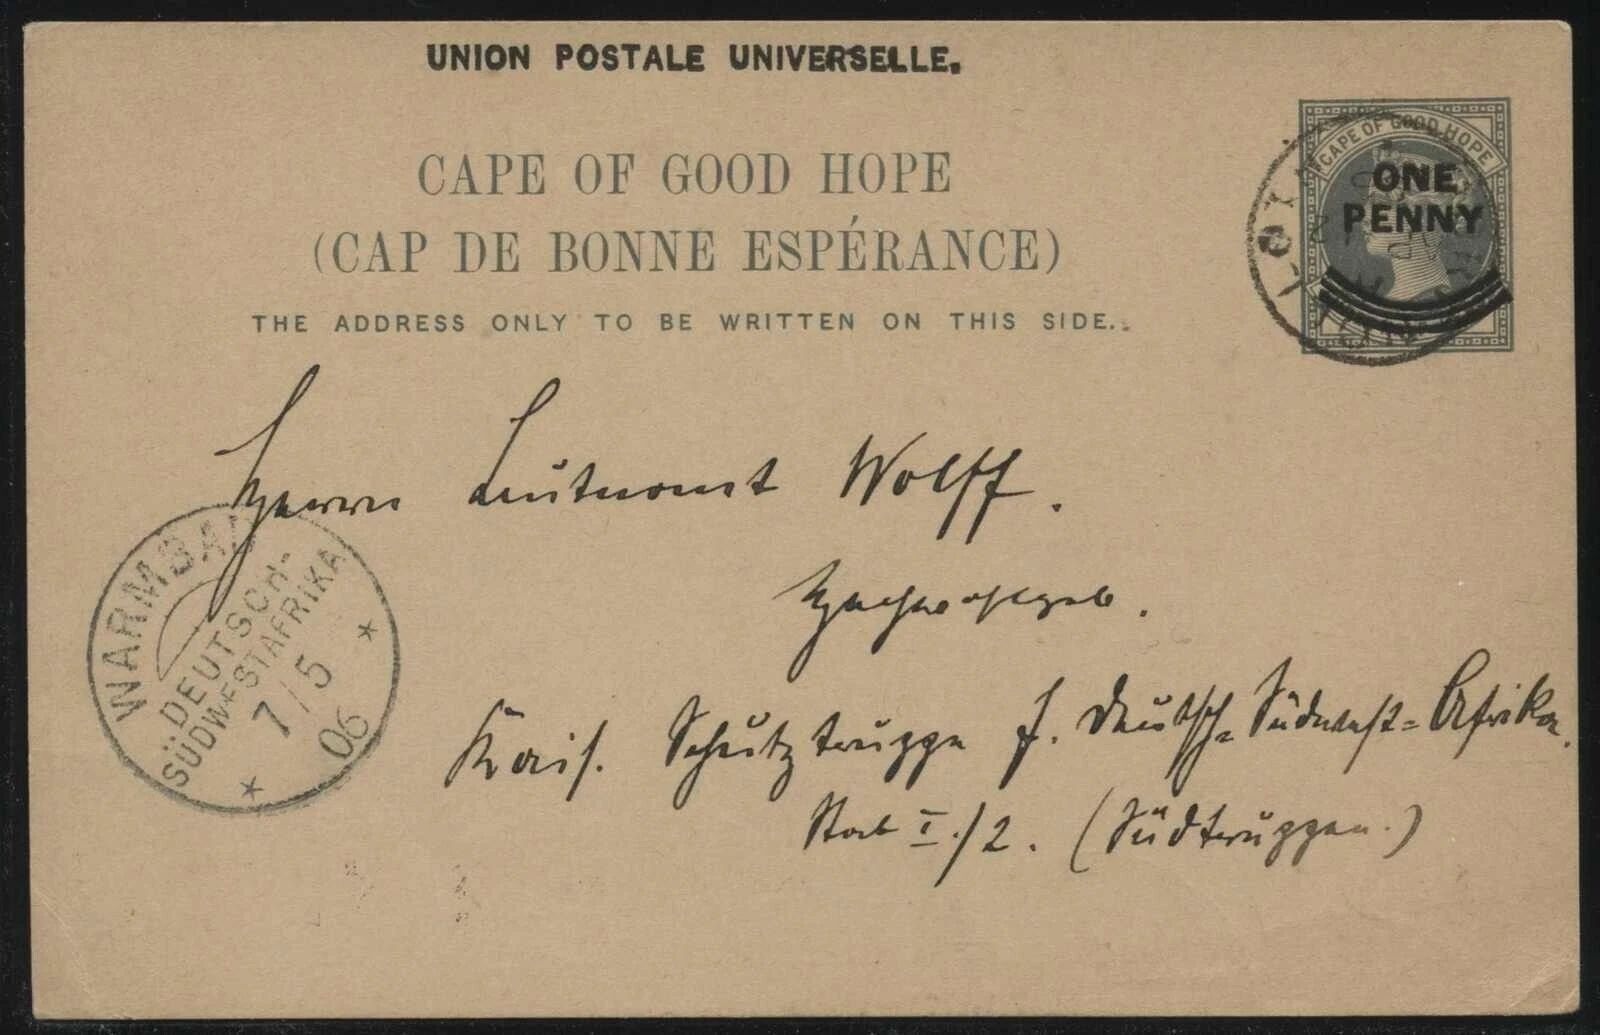 UNION POSTALE UNIVERSELLE.
CAPE OF GOOD HOPE
(CAP DE BONNE ESPÉRANCE)
THE ADDRESS ONLY TO BE WRITTEN ON THIS SIDE.
CAPE OF GOOD HOPE
ONE
PENNY
Herrn Leutnant Wolff.
Hochwohlgeb.
Kais. Schutztruppe f. Deutsch-Südwest-Afrika.
Stab I./2. (Südtruppen.)
WARMBAD
DEUTSCH-
SÜDWESTAFRIKA
7/5
06